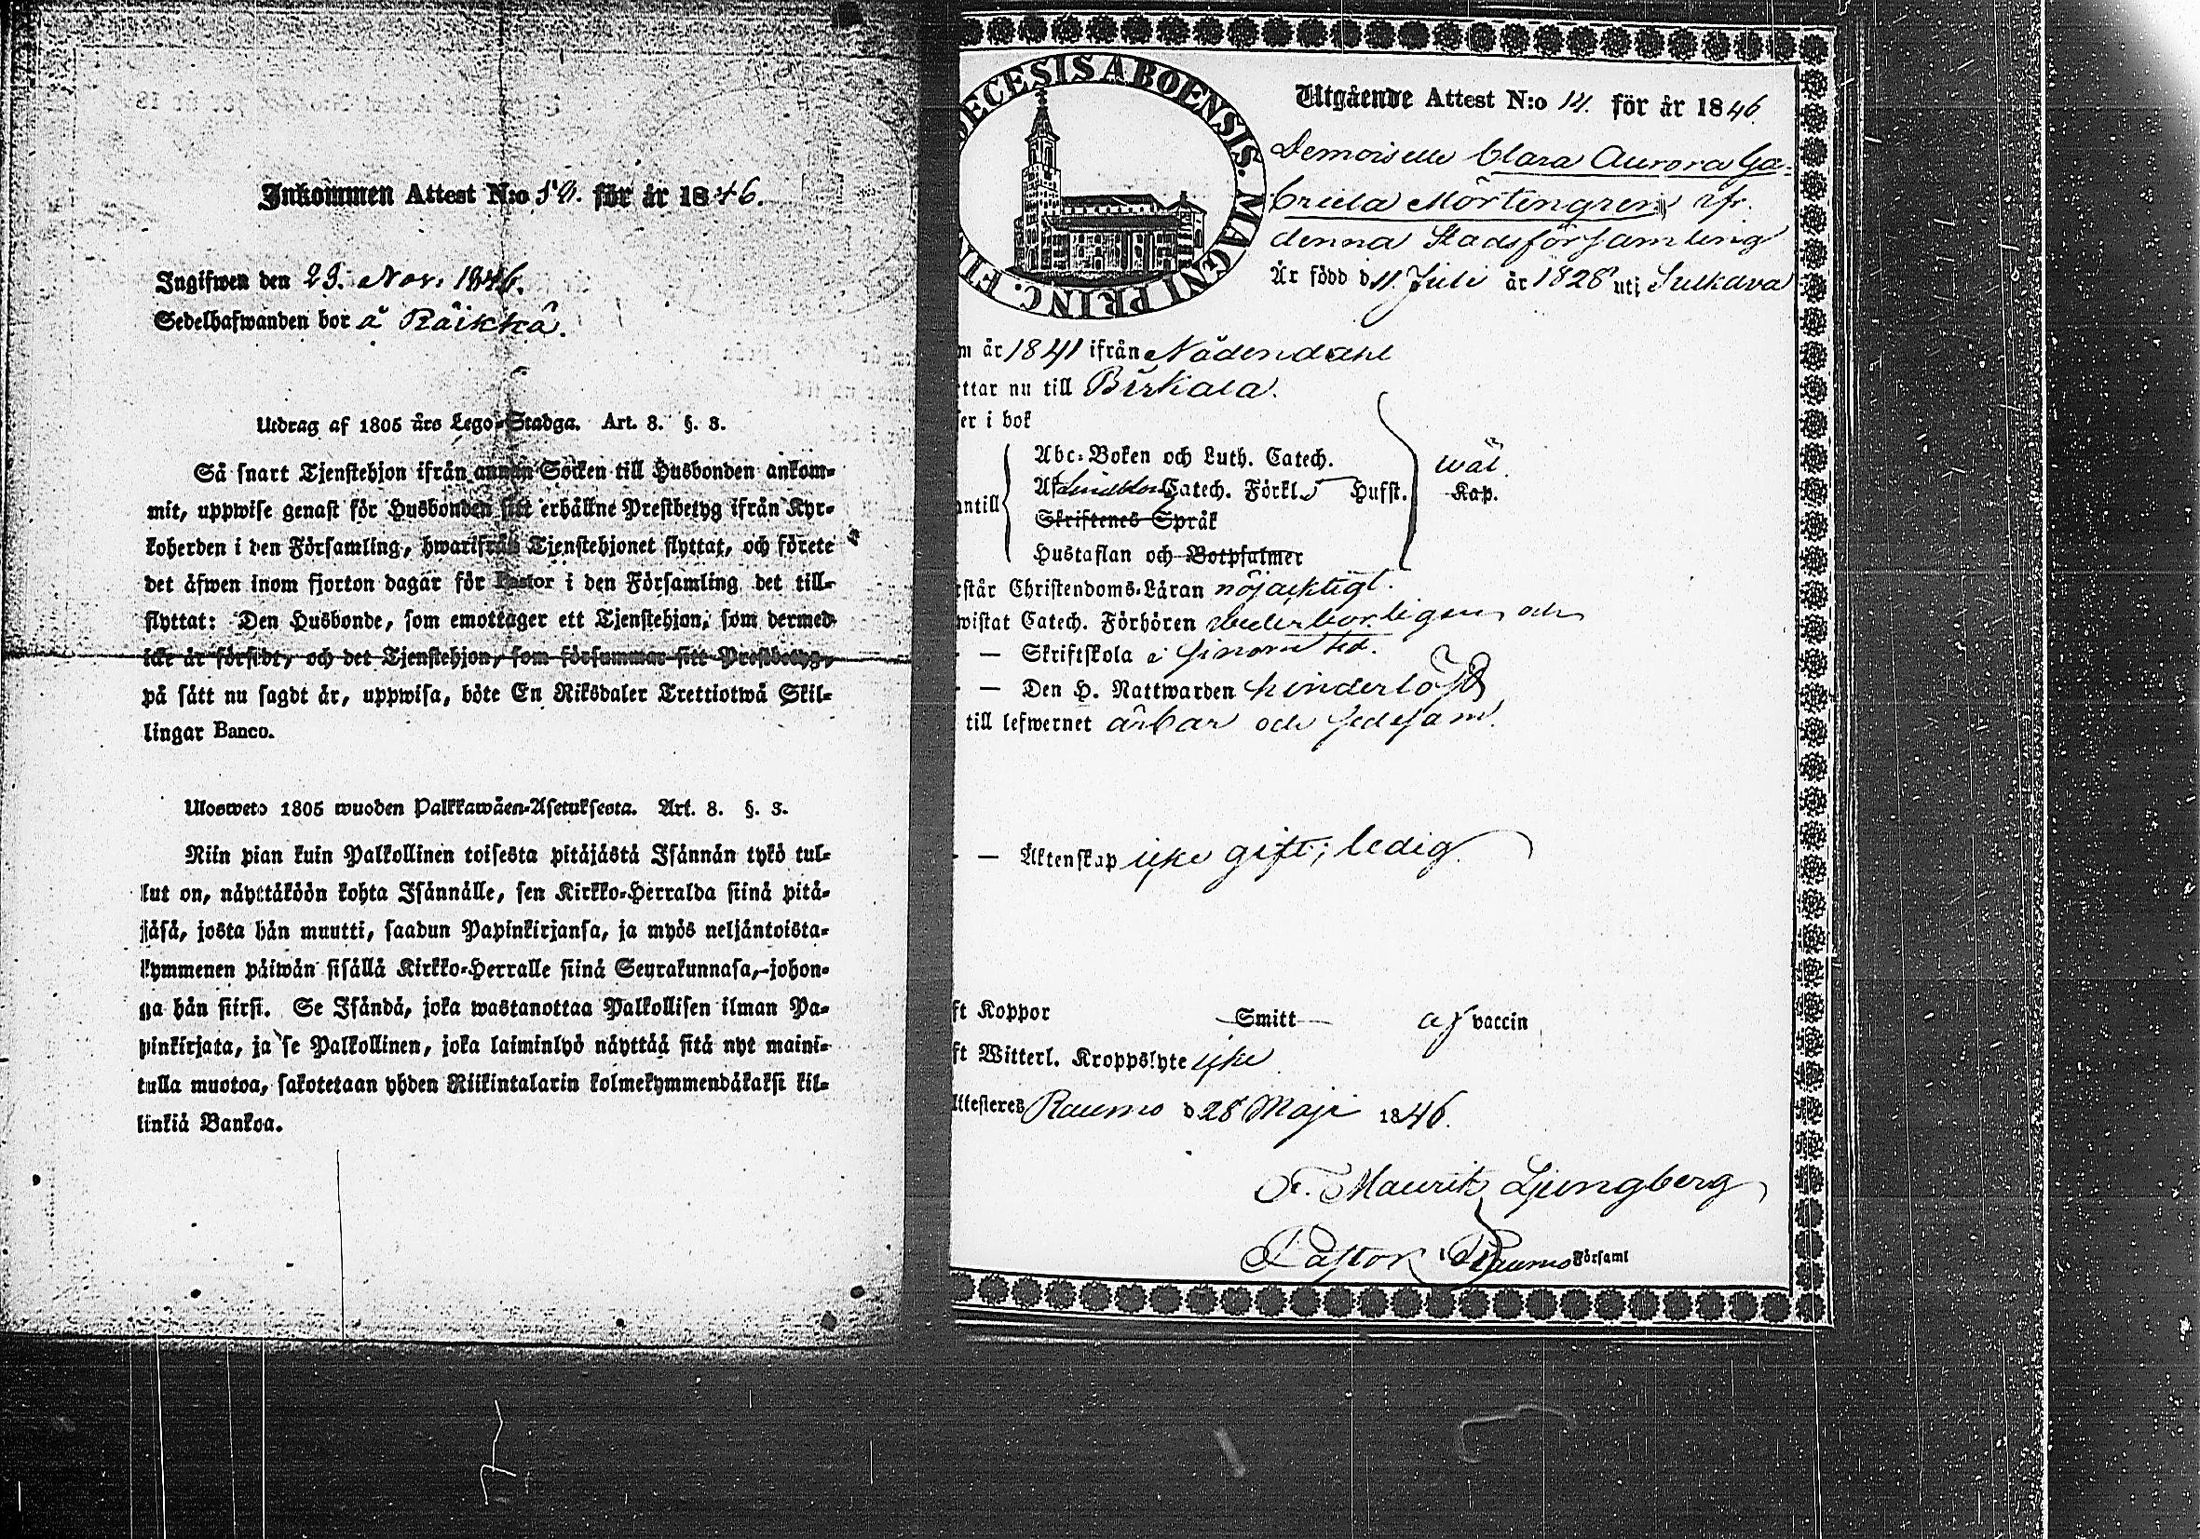 Inkommen Attest N:o 59. för år 1846.
Ingifwen den 23. Nov. 1846.
Sedelhafwanden bor å Räikkä.
Utdrag af 1805 års Lego-Stadga. Art. 8. §. 3.
Så snart Tjenstehjon ifrån annan Socken till Husbonden ankom-
mit, uppwise genast för Husbonden sitt erhållne Prestbetyg ifrån Kyr-
koherden i den Församling, hwarifrån Tjenstehjonet flyttat, och förete
det äfwen inom fjorton dagar för Pastor i den Församling det till-
flyttat: Den Husbonde, som emottager ett Tjenstehjon, som dermed
icke är försedt, och det Tjenstehjon, som försummar sitt Prestbetyg,
på sätt nu sagdt är, uppwisa, böte En Riksdaler Trettiotwå Skil-
lingar Banco.
Ulosweto 1805 wuoden Palkkawäen-Asetuksesta. Art. 8. §. 3.
Niin pian kuin Palkollinen toisesta pitäjästä Isännän tykö tul-
lut on, näyttäköön kohta Isännälle, sen Kirkko-Herralda siinä pitä-
jäsä, josta hän muutti, saadun Papinkirjansa, ja myös neljäntoista-
kymmenen päiwän sisällä Kirkko-Herralle siinä Seurakunnasa, johon-
ga hän siirsi. Se Isändä, joka wastanottaa Palkollisen ilman Pa-
pinkirjata, ja se Palkollinen, joka laiminlyö näyttää sitä nyt maini-
tulla muotoa, sakotetaan yhden Riikintalarin kolmekymmendäkaksi kil-
linkiä Bankoa.
ECESIS ABOENSIS. MAGNI PRINC. FIN
Utgående Attest N:o 14. för år 1846.
Demoiselle Clara Aurora Ga-
briela Mörtengren, ifr.
denna Stadsförsamling
Är född d 11 Juli år 1828 uti Sulkava
m år 1841 ifrån Nådendahl
ttar nu till Birkala.
er i bok
Abc-Boken och Luth. Catech.
Af Lindblom Catech. Förkl. Hufst.
wäl
Kap.
antill
Skriftenes Språk
Hustaflan och Botpsalmer
rstår Christendoms-Läran nöjacktigt.
wistat Catech. Förhören behörligen och
– Skriftskola
– Den H. Nattwarden hinderlöst
till lefwernet ärbar och sedesam.
– Äktenskap icke gift; ledig.
ft Koppor Smitt af vaccin
ft Witterl. Kroppslyte icke
Attesteres Raumo d 28 Maji 1846.
Fr. Maurits Ljungberg
Pastor i Raumo Församl